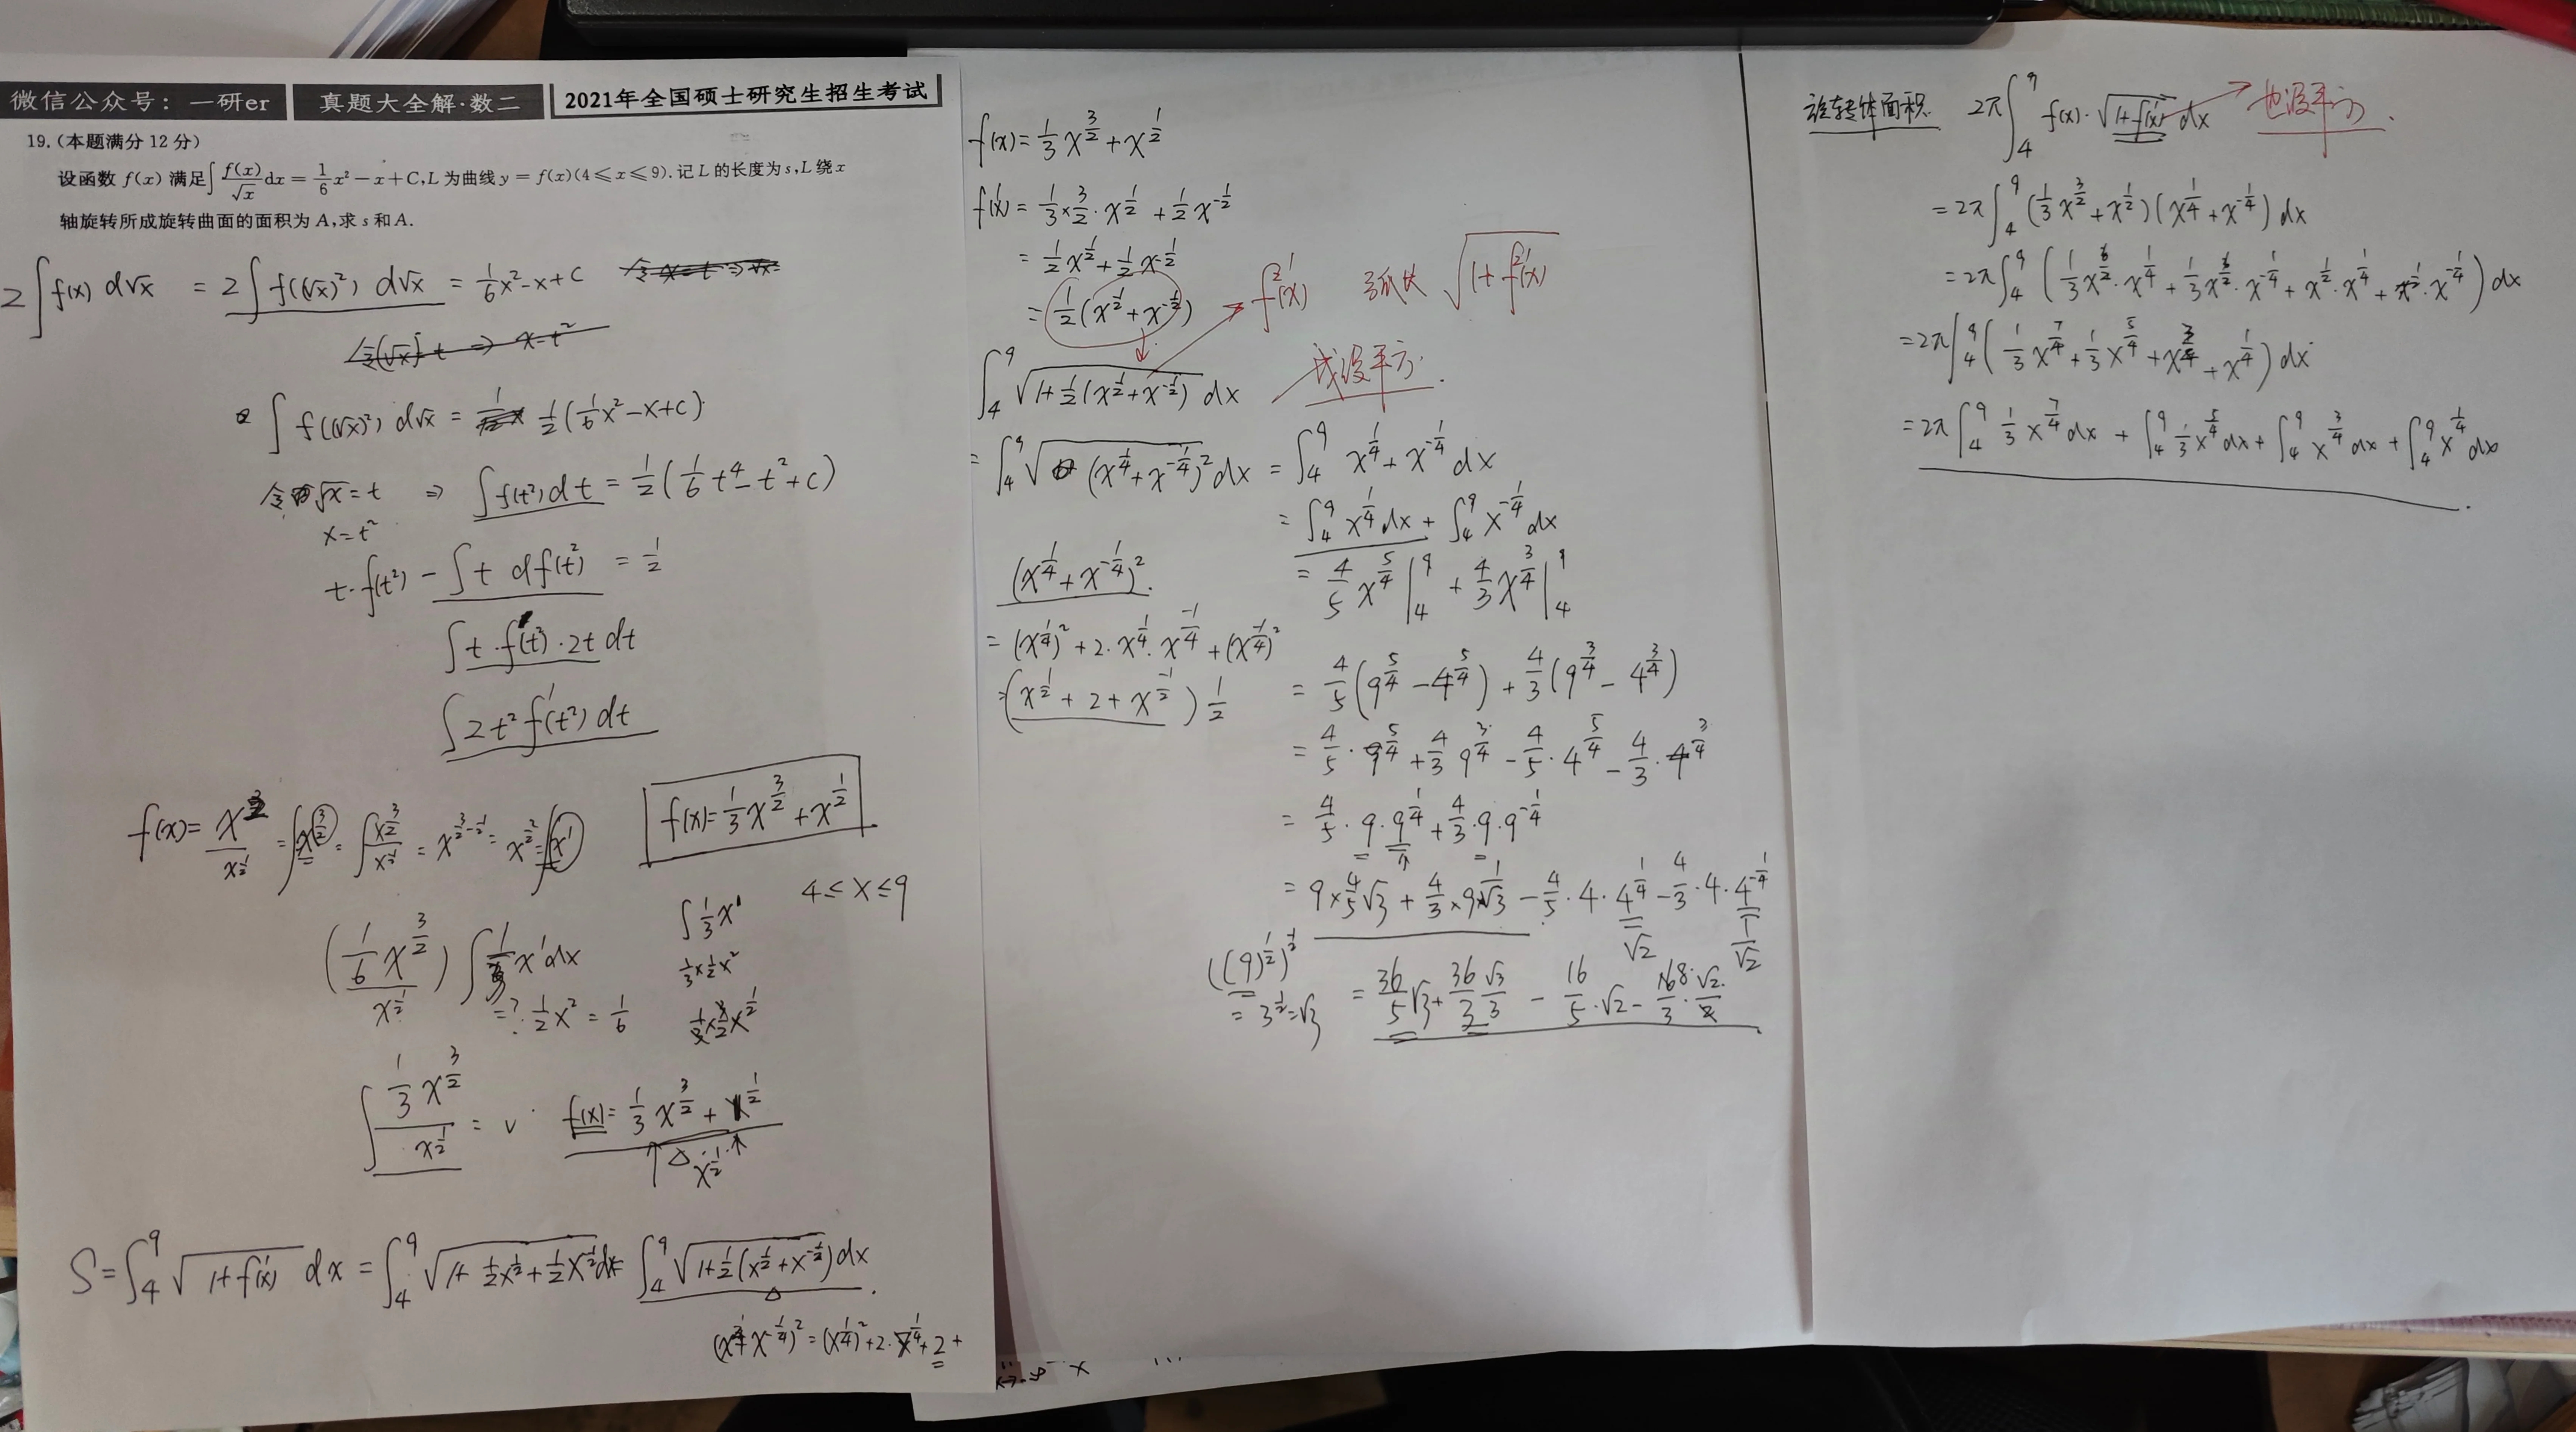 微信公众号：一研er 真题大全解·数二 2021年全国硕士研究生招生考试
19.(本题满分 12 分)
设函数 f(x) 满足∫ f(x)/√x dx = 1/6 x² − x + C, L 为曲线 y = f(x)(4 ≤ x ≤ 9). 记 L 的长度为 s, L 绕 x
轴旋转所成旋转曲面的面积为 A, 求 s 和 A.
2∫f(x) d√x = 2∫f((√x)²) d√x = 1/6 x² − x + C
∫f((√x)²) d√x = 1/2(1/6 x² − x + C)
令√x = t ⇒ ∫f(t²)dt = 1/2(1/6 t⁴ − t² + C)
x = t²
t·f(t²) − ∫t df(t²) = 1/2
∫t·f'(t²)·2t dt
∫2t² f'(t²) dt
f(x) = x^(3/2)/x^(1/2) = ∫x^(3/2) = ∫x^(3/2)/x^(1/2) = x^(3/2−1/2) = x^(2/2) = ∫x¹
f(x) = 1/3 x^(3/2) + x^(1/2)
4 ≤ x ≤ 9
(1/6 x^(3/2))/x^(1/2) ∫1/3 x¹ dx
∫1/3 x¹
1/3×1/2 x²
=? · 1/2 x² = 1/6
∫(1/3 x^(3/2))/x^(1/2) = √ f(x) = 1/3 x^(3/2) + x^(1/2)
△ x^(1/2)
S = ∫₄⁹ √(1+f'(x)) dx = ∫₄⁹ √(1+1/2 x^(1/2) + 1/2 x^(-1/2)) dx = ∫₄⁹ √(1+1/2(x^(1/2) + x^(-1/2))) dx
f(x) = 1/3 x^(3/2) + x^(1/2)
f'(x) = 1/3 × 3/2 · x^(1/2) + 1/2 x^(-1/2)
= 1/2 x^(1/2) + 1/2 x^(-1/2)
= 1/2(x^(1/2) + x^(-1/2)) f'²(x) 弧长 √(1+f'²(x))
∫₄⁹ √(1+1/2(x^(1/2) + x^(-1/2))) dx 我没平方.
= ∫₄⁹ √((x^(1/4) + x^(-1/4))²) dx = ∫₄⁹ x^(1/4) + x^(-1/4) dx
= ∫₄⁹ x^(1/4) dx + ∫₄⁹ x^(-1/4) dx
= 4/5 x^(5/4) |₄⁹ + 4/3 x^(3/4) |₄⁹
= 4/5(9^(5/4) − 4^(5/4)) + 4/3(9^(3/4) − 4^(3/4))
= 4/5 · 9^(5/4) + 4/3 9^(3/4) − 4/5 · 4^(5/4) − 4/3 · 4^(3/4)
= 4/5 · 9 · 9^(1/4) + 4/3 · 9 · 9^(-1/4)
= 9×4/5 √3 + 4/3 × 9×1/√3 − 4/5 · 4 · 4^(1/4) − 4/3 · 4 · 4^(-1/4)
√2 1/√2
= 36/5 √3 + 36/3 √3/3 − 16/5 · √2 − 8/3 · √2
((9)^(1/2))^(1/2)
= 3^(1/2) = √3
(x^(1/4) + x^(-1/4))²
= (x^(1/4))² + 2 · x^(1/4) · x^(-1/4) + (x^(-1/4))²
= (x^(1/2) + 2 + x^(-1/2)) 1/2
旋转体面积 2π∫₄⁹ f(x) · √(1+f'(x)) dx 也没平方.
= 2π∫₄⁹ (1/3 x^(3/2) + x^(1/2))(x^(1/4) + x^(-1/4)) dx
= 2π∫₄⁹ (1/3 x^(3/2) · x^(1/4) + 1/3 x^(3/2) · x^(-1/4) + x^(1/2) · x^(1/4) + x^(1/2) · x^(-1/4)) dx
= 2π∫₄⁹ (1/3 x^(7/4) + 1/3 x^(5/4) + x^(3/4) + x^(1/4)) dx
= 2π∫₄⁹ 1/3 x^(7/4) dx + ∫₄⁹ 1/3 x^(5/4) dx + ∫₄⁹ x^(3/4) dx + ∫₄⁹ x^(1/4) dx